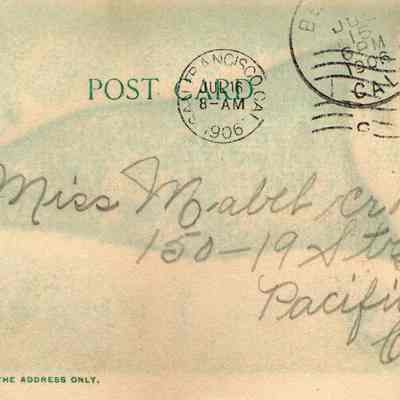 POST CARD
SAN FRANCISCO, CAL.
JUL 16
8-AM
1906
JUL
1906
CAL
Miss Mabel
150-19 Str
Pacific
THE ADDRESS ONLY.